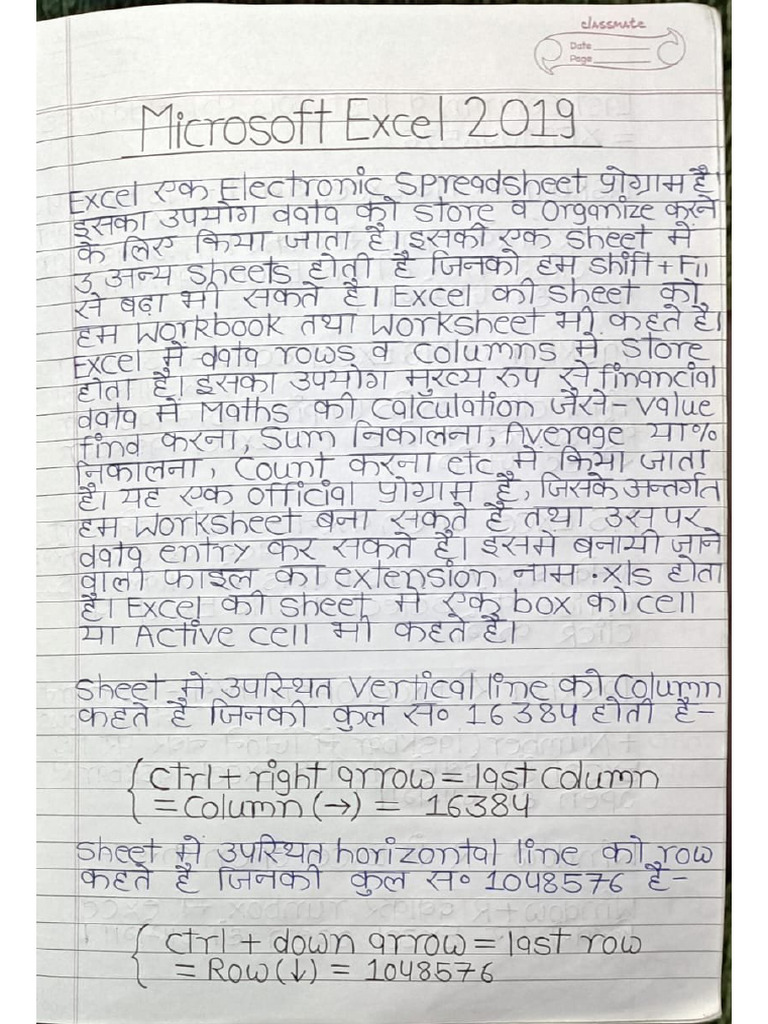 classmate
Date
Page
Microsoft Excel 2019
Excel एक Electronic Spreadsheet प्रोग्राम है।
इसका उपयोग data को store व organize करने
के लिए किया जाता है। इसकी एक sheet में
3 अन्य sheets होती है जिनको हम Shift + F11
से बढ़ा भी सकते है। Excel की sheet को
हम Workbook तथा Worksheet भी कहते है।
Excel में data rows व columns में store
होता है। इसका उपयोग मुख्य रूप से financial
data में Maths की calculation जैसे - value
find करना, Sum निकालना, Average या %
निकालना, Count करना etc में किया जाता
है। यह एक official प्रोग्राम है, जिसके अन्तर्गत
हम Worksheet बना सकते है तथा उस पर
data entry कर सकते है। इसमें बनायी जाने
वाली फाइल का extension नाम .xls होता
है। Excel की sheet में एक box को cell
या Active cell भी कहते है।
Sheet में उपस्थित Vertical line को Column
कहते है जिनकी कुल स० 16384 होती है-
{ ctrl + right arrow = last column
= Column (→) = 16384
Sheet में उपस्थित horizontal line को row
कहते है जिनकी कुल स० 1048576 है-
{ ctrl + down arrow = last row
= Row (↓) = 1048576